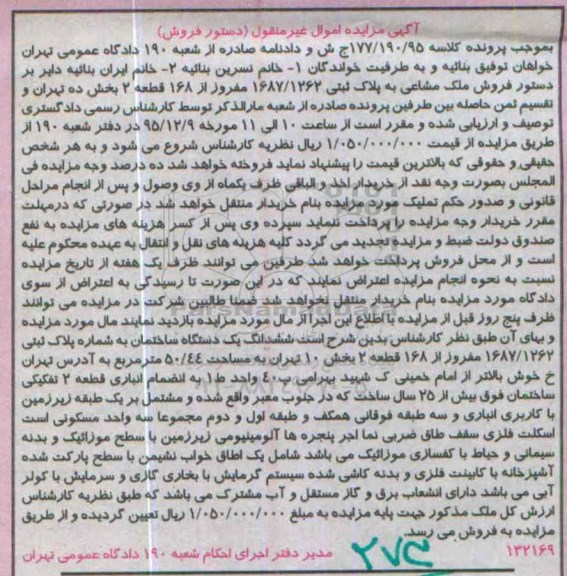 آگهی مزایده اموال غیرمنقول (دستور فروش)
بموجب پرونده کلاسه ۱۷۷/۱۹۰/۹۵ج ش و دادنامه صادره از شعبه ۱۹۰ دادگاه عمومی تهران
خواهان توفیق بنائیه و به طرفیت خواندگان ۱- خانم نسرین بنائیه ۲- خانم ایران بنائیه دایر بر
دستور فروش ملک مشاعی به پلاک ثبتی ۱۶۸۷/۱۲۶۲ مفروز از ۱۶۸ قطعه ۲ بخش ده تهران و
تقسیم ثمن حاصله بین طرفین پرونده صادره از شعبه مارالذکر توسط کارشناس رسمی دادگستری
توصیف و ارزیابی شده و مقرر است از ساعت ۱۰ الی ۱۱ مورخه ۹۵/۱۲/۹ در دفتر شعبه ۱۹۰ از
طریق مزایده از قیمت ۱/۰۵۰/۰۰۰/۰۰۰ ریال نظریه کارشناس شروع می شود و به هر شخص
حقیقی و حقوقی که بالاترین قیمت را پیشنهاد نماید فروخته خواهد شد ده درصد وجه مزایده فی
المجلس بصورت وجه نقد از خریدار اخذ و الباقی ظرف یکماه از وی وصول و پس از انجام مراحل
قانونی و صدور حکم تملیک مورد مزایده بنام خریدار منتقل خواهد شد در صورتی که درمهلت
مقرر خریدار وجه مزایده را پرداخت ننماید سپرده وی پس از کسر هزینه های مزایده به نفع
صندوق دولت ضبط و مزایده تجدید می گردد کلیه هزینه های نقل و انتقال به عهده محکوم علیه
است و از محل فروش پرداخت خواهد شد طرفین می توانند ظرف یک هفته از تاریخ مزایده
نسبت به نحوه انجام مزایده اعتراض نمایند که در این صورت تا رسیدگی به اعتراض از سوی
دادگاه مورد مزایده بنام خریدار منتقل نخواهد شد ضمنا طالبین شرکت در مزایده می توانند
ظرف پنج روز قبل از مزایده با اطلاع این اجرا از مال مورد مزایده بازدید نمایند مال مورد مزایده
و بهای آن طبق نظر کارشناس بدین شرح است ششدانگ یک دستگاه ساختمان به شماره پلاک ثبتی
۱۶۸۷/۱۲۶۲ مفروز از ۱۶۸ قطعه ۲ بخش ۱۰ تهران به مساحت ۵۰/۴۴ متر مربع به آدرس تهران
خ خوش بالاتر از امام خمینی ک شهید بهرامی پ۴۰ واحد ط۱ به انضمام انباری قطعه ۲ تفکیکی
ساختمان فوق بیش از ۲۵ سال ساخت که در جنوب معبر واقع شده و مشتمل بر یک طبقه زیرزمین
با کاربری انباری و سه طبقه فوقانی همکف و طبقه اول و دوم مجموعا سه واحد مسکونی است
اسکلت فلزی سقف طاق ضربی نما اجر پنجره ها آلومینیومی زیرزمین با سطح موزائیک و بدنه
سیمانی و حیاط با کفسازی موزائیک می باشد شامل یک اطاق خواب نشیمن با سطح پارکت شده
آشپزخانه با کابینت فلزی و بدنه کاشی شده سیستم گرمایش با بخاری گازی و سرمایش با کولر
آبی می باشد دارای انشعاب برق و گاز مستقل و آب مشترک می باشد که طبق نظریه کارشناس
ارزش کل ملک مذکور جهت پایه مزایده به مبلغ ۱/۰۵۰/۰۰۰/۰۰۰ ریال تعیین گردیده و از طریق
مزایده به فروش می رسد.
۱۳۲۱۶۹ مدیر دفتر اجرای احکام شعبه ۱۹۰ دادگاه عمومی تهران